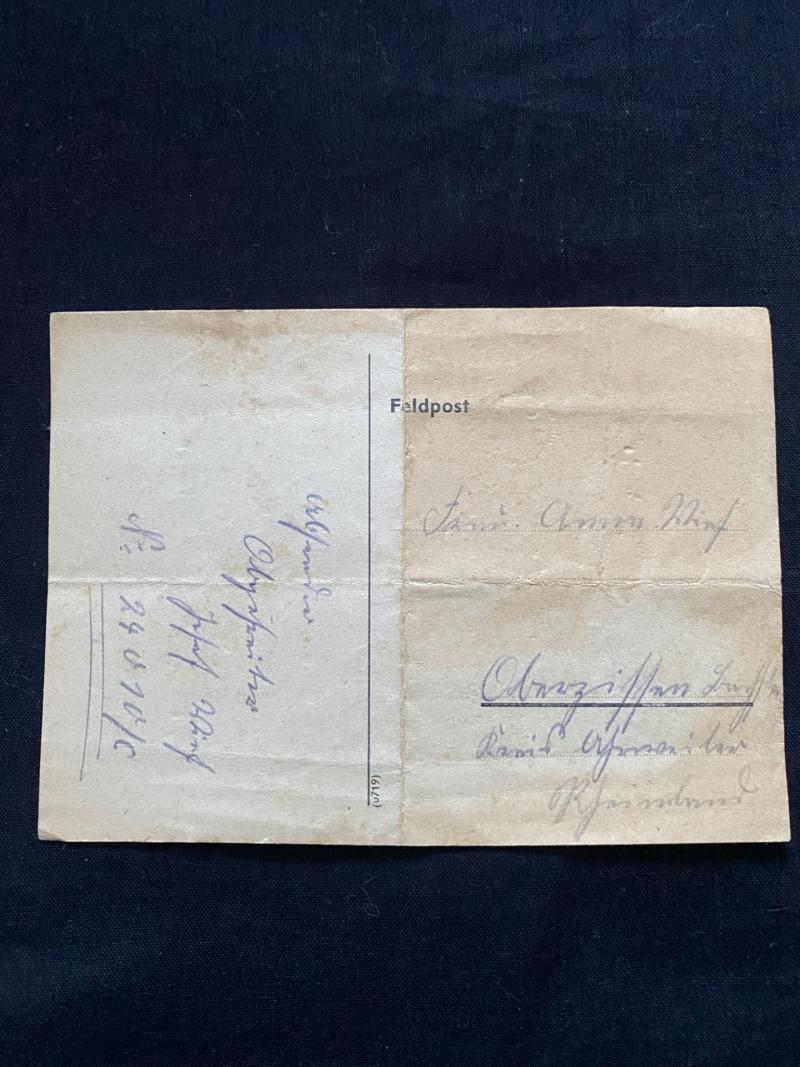 Feldpost
Frau. Anna
Oberzissen
Kreis Ahrweiler
Rheinland
(u719)
Absender
Obgefreiter
Josef